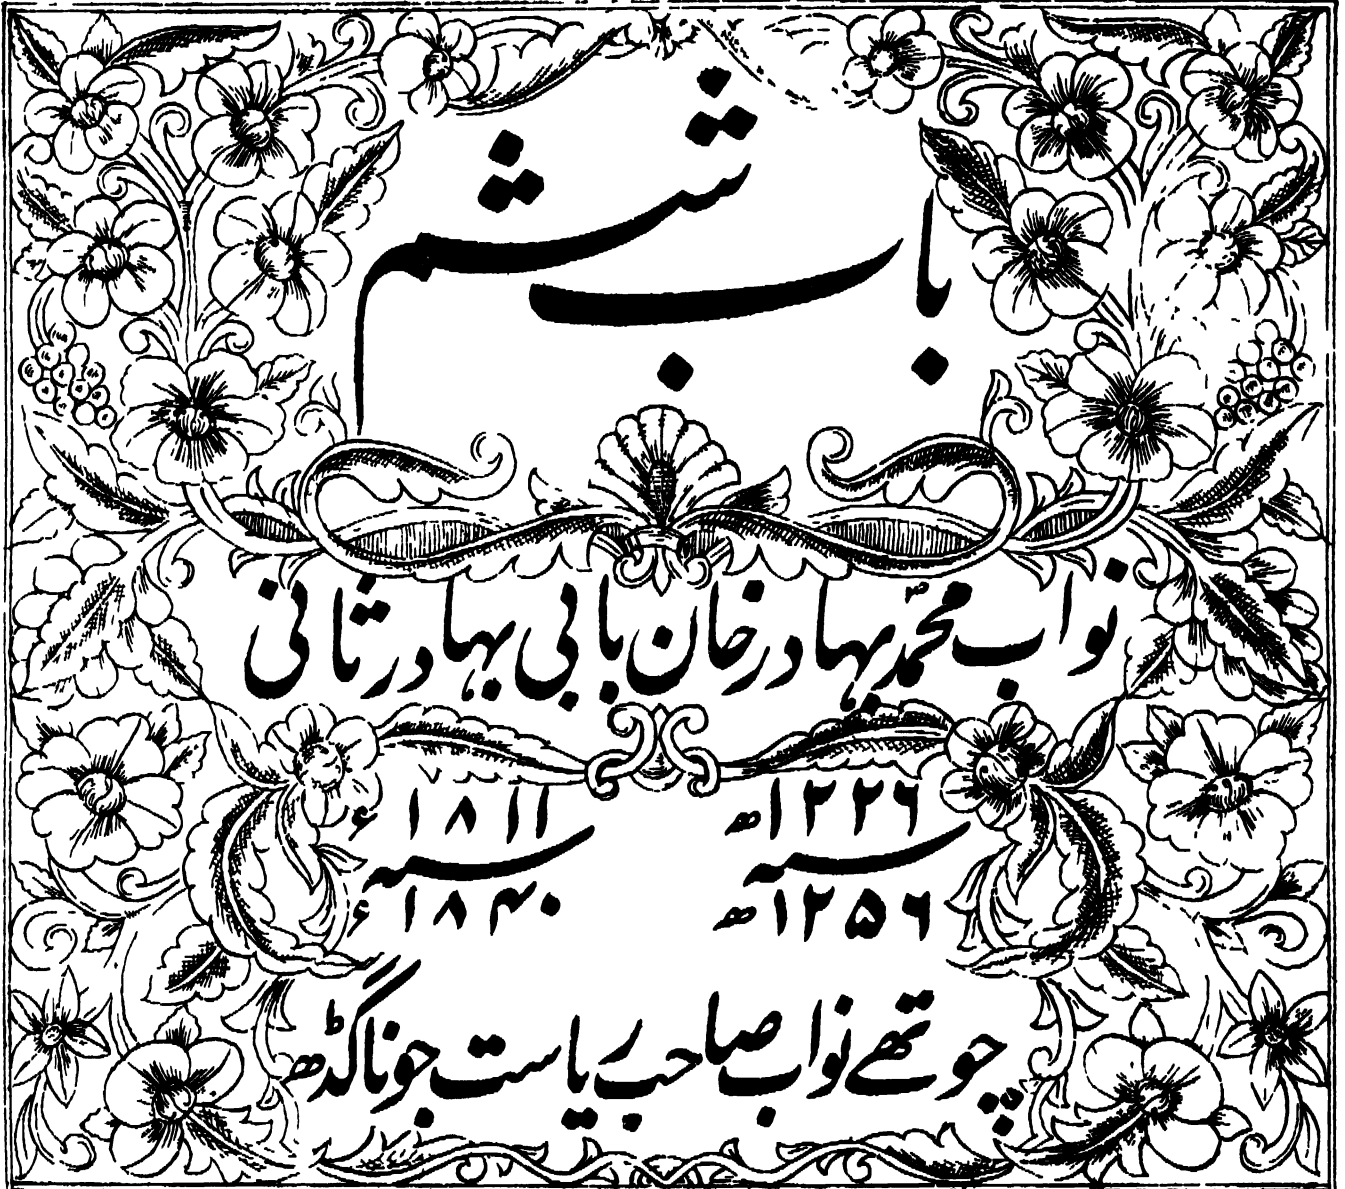 باب ششم
نواب محمدؐ بہادر خان بابی بہادر ثانی
۱۲۲۶ھ ۱۸۱۱ء
سنہ سنہ
۱۲۵۶ھ ۱۸۴۰ء
چوتھے نواب صاحب ریاست جوناگڈھ